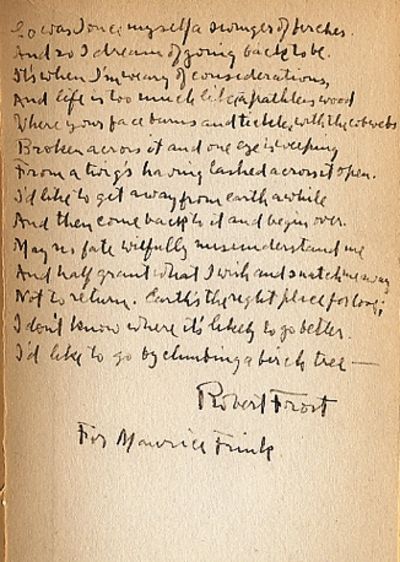 So was I once myself a swinger of birches.
And so I dream of going back to be.
It's when I'm weary of considerations,
And life is too much like a pathless wood
Where your face burns and tickles with the cobwebs
Broken across it and one eye is weeping
From a twig's having lashed across it open.
I'd like to get away from earth awhile
And then come back to it and begin over.
May no fate wilfully misunderstand me
And half grant what I wish and snatch me away
Not to return. Earth's the right place for love;
I don't know where it's likely to go better.
I'd like to go by climbing a birch tree —
Robert Frost
For Maurice Frink